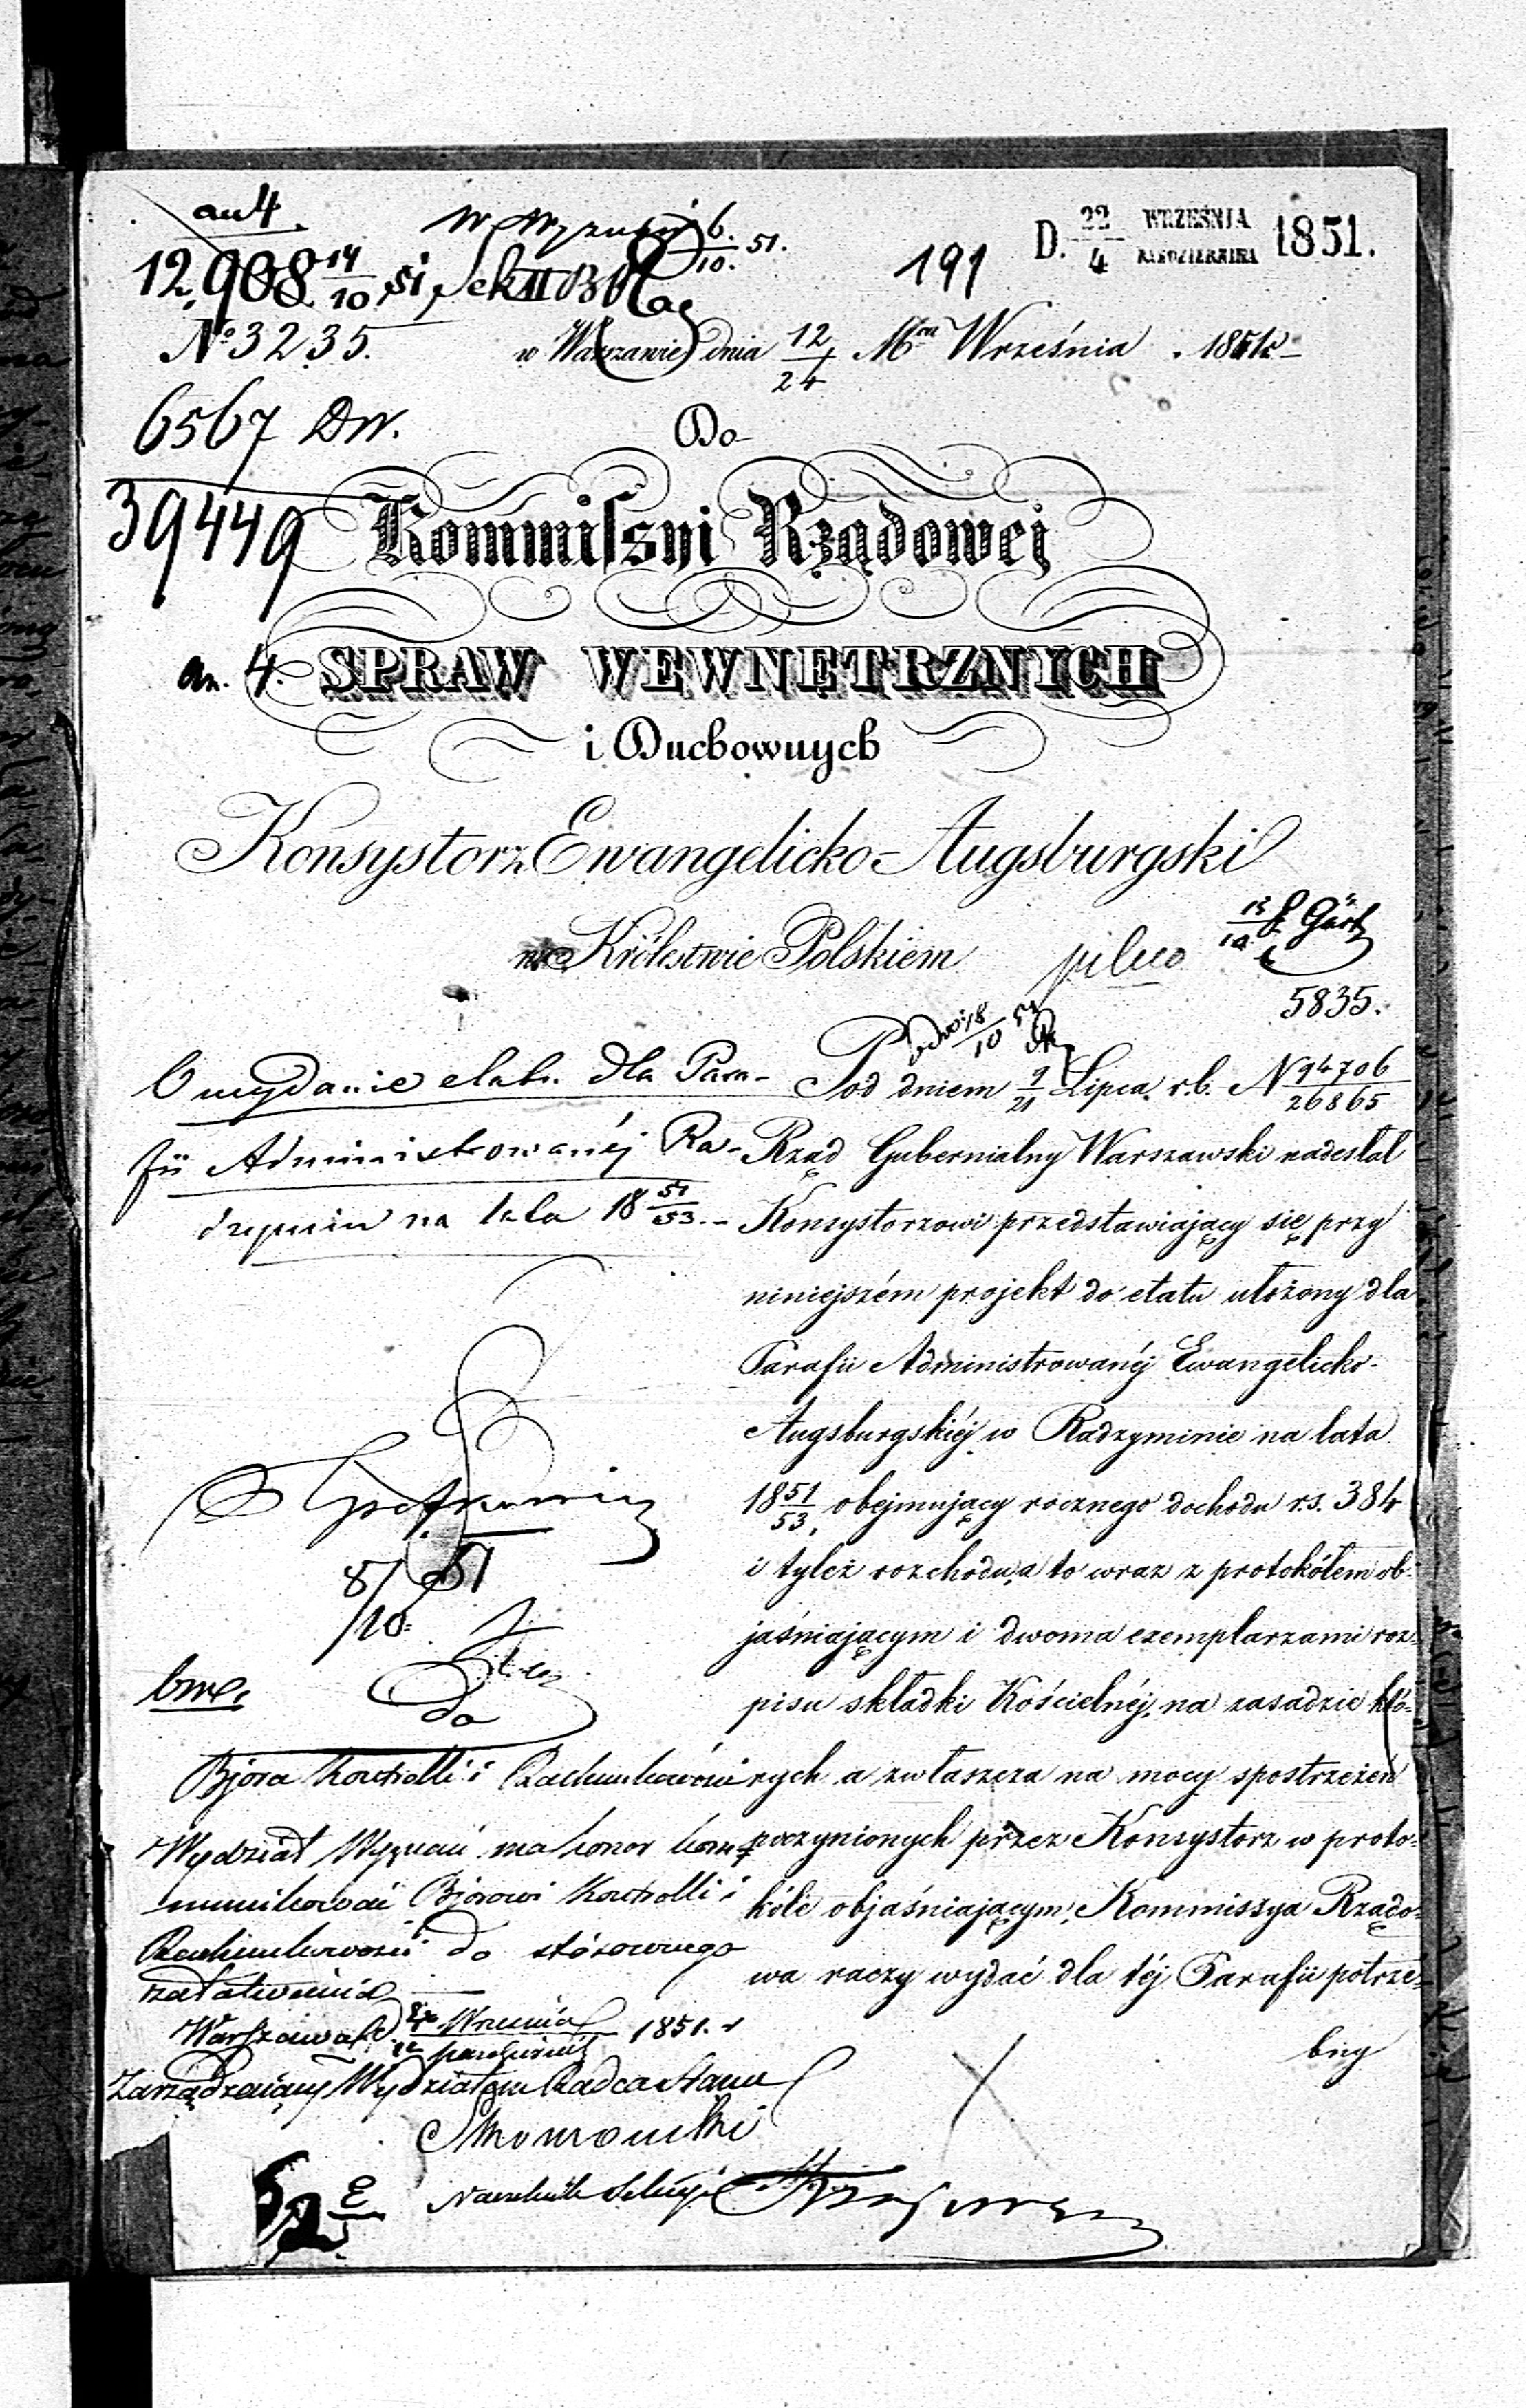 an 4.
W. Wyznań 6./10. 51.
D. 22/4 WRZEŚNIA/PAŹDZIERNIKA 1851.
12,908 14/10 Si, Sek II
191
№ 3235.
w Warszawie dnia 12/24 Mca Września 1851 r.
6567 DW.
Do
39449
Kommissyi Rządowej
an. 4.
SPRAW WEWNĘTRZNYCH
i Duchownych
Konsystorz Ewangelicko-Augsburgski
w Królestwie Polskiem
pilno
5835.
O wydanie etatu dla Para-
fii Administrowanéj Ra-
dzymin na lata 18 51/53. –
Pod dniem 9/21 Lipca r.b. N 94706/26865
Rząd Gubernialny Warszawski nadesłał
Konsystorzowi przedstawiający się przy
niniejszém projekt do etatu ułożony dla
Parafii Administrowanéj Ewangelicko-
Augsburgskiéj w Radzyminie na lata
18 51/53, obejmujący rocznego dochodu r.s. 384
i tyleż rozchodu, a to wraz z protokółem ob-
jaśniającym i dwoma exemplarzami roz-
pisu składki Kościelnéj, na zasadzie któ-
rych a zwłaszcza na mocy spostrzeżeń
poczynionych przez Konsystorz w proto-
kóle objaśniającym, Kommissya Rządo-
wa raczy wydać dla téj Parafii potrze-
bny
8/10 51
bme.
Do
Bjóra Kontrolli i Rachunkowości
Wydział Wyznań ma honor kom-
munikować Bjórowi Kontrolli i
Rachunkowości do stósownego
załatwienia
Warszawa d. Września/Października 1851. r
Zarządzający Wydziałem Radca Stanu
Naczelnik Sekcyi